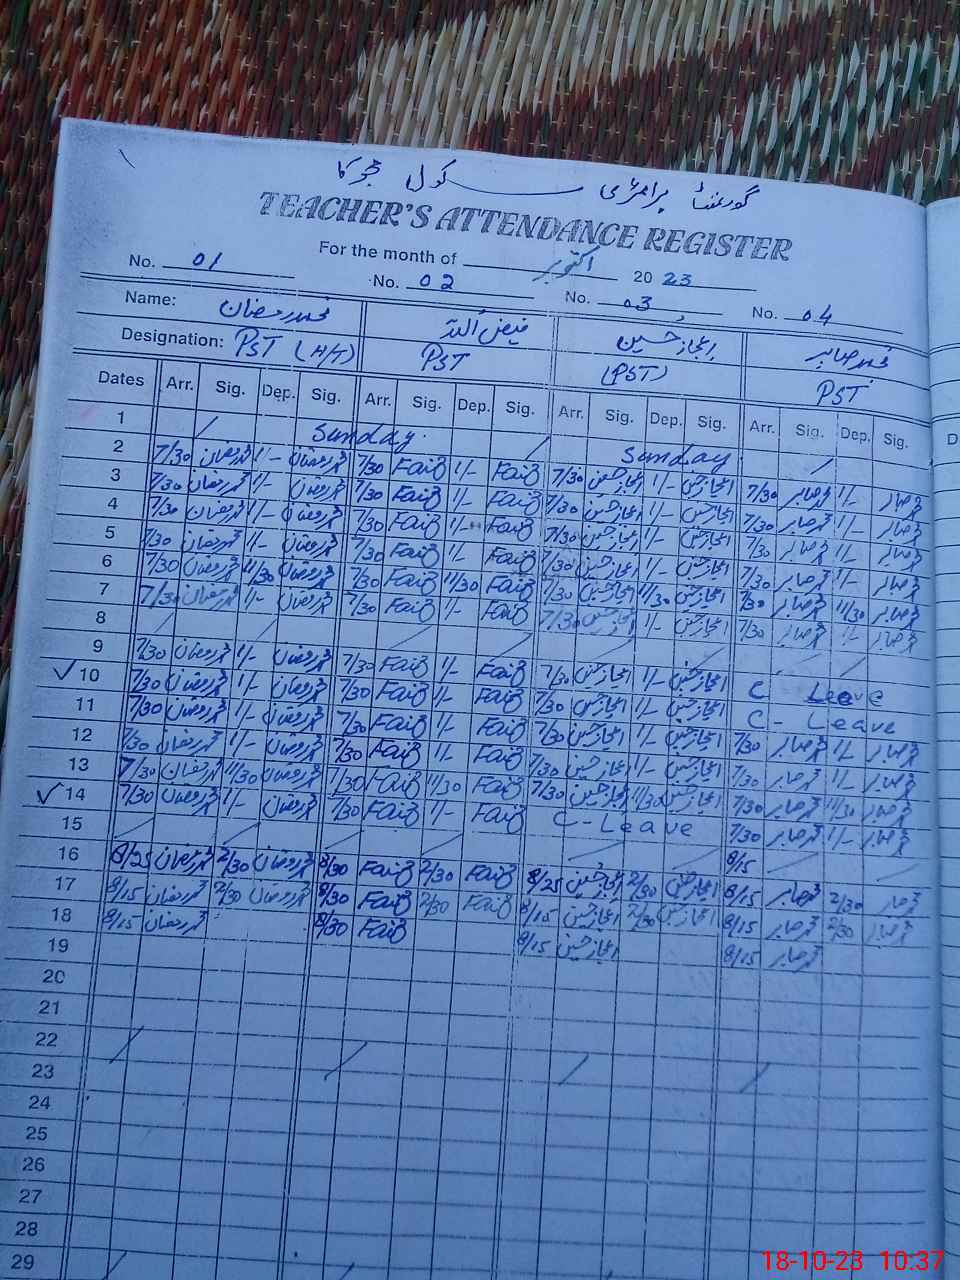 گورنمنٹ پرائمری سکول
TEACHER'S ATTENDANCE REGISTER
For the month of اکتوبر 2023
No. 01 No. 02 No. 03 No. 04
Name: محمد رمضان فیض اللہ اعجاز حسین محمد صابر
Designation: PST (H/T) PST (PST) PST
Dates Arr. Sig. Dep. Sig. Arr. Sig. Dep. Sig. Arr. Sig. Dep. Sig. Arr. Sig. Dep. Sig.
1 Sunday. Sunday
2 7/30 محمد رمضان 1/- محمد رمضان 7/30 Faiz 1/- Faiz 7/30 اعجاز حسین 1/- اعجاز حسین 7/30 محمد صابر 1/- محمد صابر
3 7/30 محمد رمضان 1/- محمد رمضان 7/30 Faiz 1/- Faiz 7/30 اعجاز حسین 1/- اعجاز حسین 7/30 محمد صابر 1/- محمد صابر
4 7/30 محمد رمضان 1/- محمد رمضان 7/30 Faiz 1/- Faiz 7/30 اعجاز حسین 1/- اعجاز حسین 7/30 محمد صابر 1/- محمد صابر
5 7/30 محمد رمضان 1/- محمد رمضان 7/30 Faiz 1/- Faiz 7/30 اعجاز حسین 1/- اعجاز حسین 7/30 محمد صابر 1/- محمد صابر
6 7/30 محمد رمضان 11/30 محمد رمضان 7/30 Faiz 11/30 Faiz 7/30 اعجاز حسین 11/30 اعجاز حسین 7/30 محمد صابر 11/30 محمد صابر
7 7/30 محمد رمضان 1/- محمد رمضان 7/30 Faiz 1/- Faiz 7/30 اعجاز حسین 1/- اعجاز حسین 7/30 محمد صابر 1/- محمد صابر
8
9 7/30 محمد رمضان 1/- محمد رمضان 7/30 Faiz 1/- Faiz 7/30 اعجاز حسین 1/- اعجاز حسین C Leave
10 7/30 محمد رمضان 1/- محمد رمضان 7/30 Faiz 1/- Faiz 7/30 اعجاز حسین 1/- اعجاز حسین C - Leave
11 7/30 محمد رمضان 1/- محمد رمضان 7/30 Faiz 1/- Faiz 7/30 اعجاز حسین 1/- اعجاز حسین 7/30 محمد صابر 1/- محمد صابر
12 7/30 محمد رمضان 1/- محمد رمضان 7/30 Faiz 1/- Faiz 7/30 اعجاز حسین 1/- اعجاز حسین 7/30 محمد صابر 1/- محمد صابر
13 7/30 محمد رمضان 11/30 محمد رمضان 7/30 Faiz 11/30 Faiz 7/30 اعجاز حسین 11/30 اعجاز حسین 7/30 محمد صابر 11/30 محمد صابر
14 7/30 محمد رمضان 1/- محمد رمضان 7/30 Faiz 1/- Faiz C-Leave 7/30 محمد صابر 1/- محمد صابر
15 8/15
16 8/25 محمد رمضان 2/30 محمد رمضان 8/30 Faiz 2/30 Faiz 8/25 اعجاز حسین 2/30 اعجاز حسین 8/15 محمد صابر 2/30 محمد صابر
17 8/15 محمد رمضان 2/30 محمد رمضان 8/30 Faiz 2/30 Faiz 8/15 اعجاز حسین 2/30 اعجاز حسین 8/15 محمد صابر 2/30 محمد صابر
18 8/15 محمد رمضان 8/30 Faiz 8/15 اعجاز حسین 8/15 محمد صابر
19
20
21
22
23
24
25
26
27
28
29
D
18-10-23 10:37